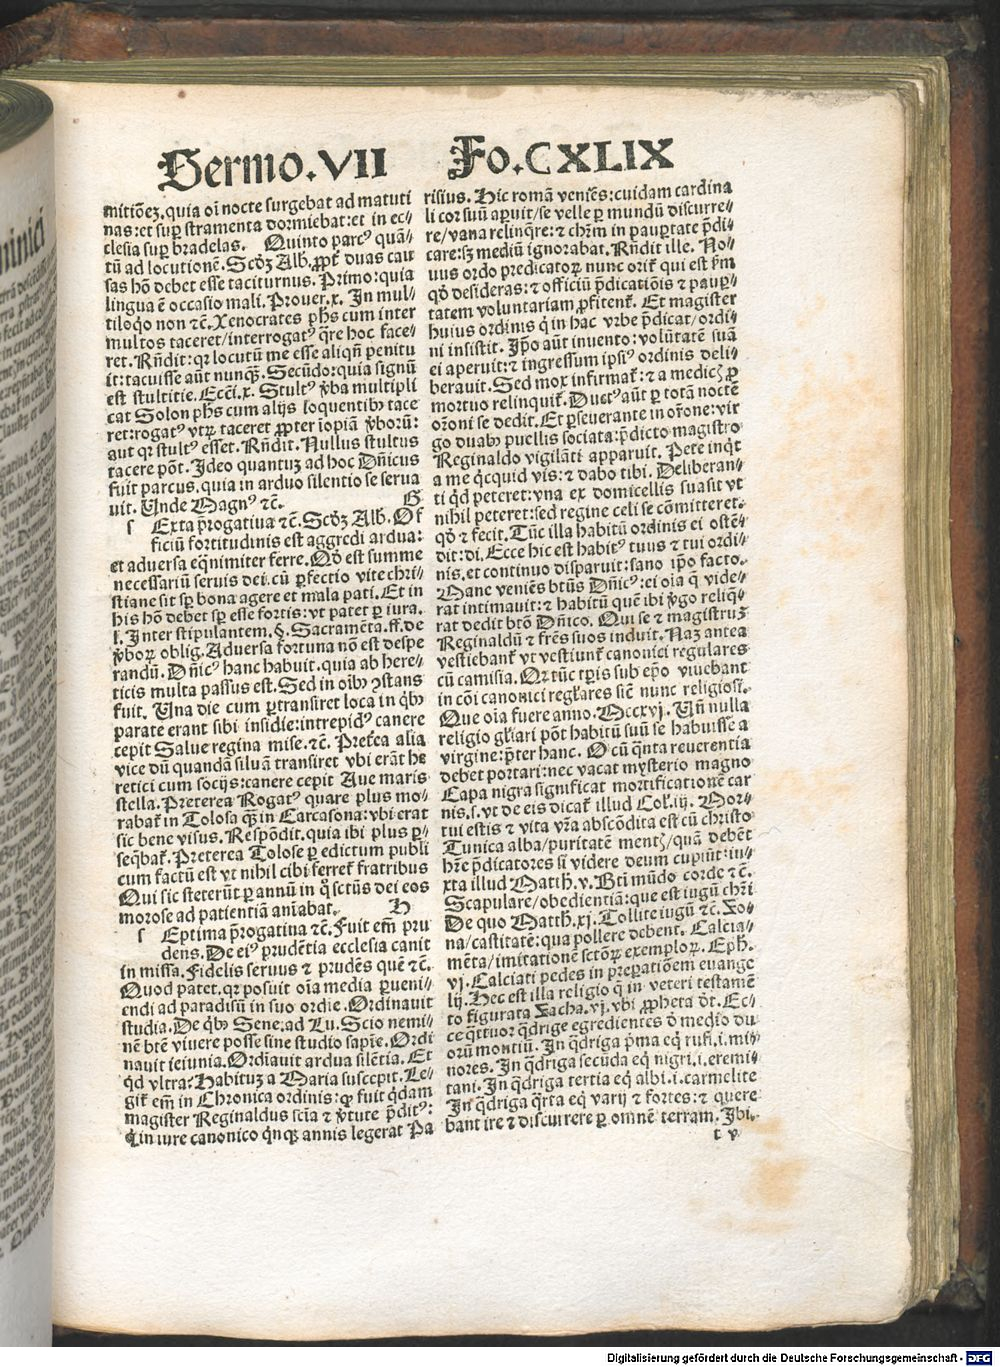 Sermo.VII Fo.CXLIX
mitiōeȝ.quia oī nocte surgebat ad matuti
nas:et suꝑ stramenta dormiebat:et in ec-
clesia suꝑ bradelas. Quinto parcꝰ quā-
tū ad locutionē. Scdȝ Alb. ꝓpt duas cau
sas hō debet esse taciturnus. Primo:quia
lingua ē occasio mali. Prouer.x. In mul-
tiloqo non ⁊c. Xenocrates phs cum inter
multos taceret/interrogatꝰ qre hoc face-
ret. Rñdit:qr locutū me esse aliqñ penitu
it:tacuisse aūt nunqȝ. Secūdo:quia signū
est stultitie. Ecci.x. Stultꝰ v̄ba multipli
cat Solon phs cum alijs loquentibꝫ tace
ret:rogatꝰ vtꝝ taceret ꝓpter īopiā v̄boꝝ:
aut qr stultꝰ esset. Rñdit. Nullus stultus
tacere pōt. Ideo quantuȝ ad hoc Dñicus
fuit parcus.quia in arduo silentio se serua
uit. Unde Magnꝰ ⁊c. G
s Exta p̄rogatiua ⁊c. Scdȝ Alb. Of
ficiū fortitudinis est aggredi ardua:
et aduersa eqnimiter ferre. Qd̄ est summe
necessariū seruis dei.cū ꝑfectio vite chri-
stiane sit sꝑ bona agere et mala pati. Et in
his hō debet sꝑ esse fortis:vt patet ꝑ iura.
l. Inter stipulantem. §. Sacramēta.ff.de
v̄boꝝ oblig. Aduersa fortuna nō est despe
randū. Dñicꝰ hanc habuit.quia ab here-
ticis multa passus est. Sed in oibꝫ ꝯstans
fuit. Una die cum ꝑtransiret loca in qbꝫ
parate erant sibi insidie:intrepidꝰ canere
cepit Salue regina mise.⁊c. Preterea alia
vice dū quandā siluā transiret vbi erāt he
retici cum socijs:canere cepit Aue maris
stella. Preterea Rogatꝰ quare plus mo-
rabat in Tolosa qȝ in Carcasona:vbi erat
sic bene visus. Respōdit.quia ibi plus ꝑ-
seqbat. Preterea Tolose ꝑ edictum publi
cum factū est vt nihil cibi ferret fratribus
Qui sic steterūt ꝑ annū in q̇ sctūs dei eos
morose ad patientiā aniabat. H
s Eptima p̄rogatiua ⁊c. Fuit em̄ pru
dens. De eiꝰ prudētia ecclesia canit
in missa. Fidelis seruus ⁊ prudēs quē ⁊c.
Quod patet.qr posuit oia media ꝑueni-
endi ad paradisū in suo ordie. Ordinauit
studia. De qbꝫ Sene.ad Lu. Scio nemi-
nē btē viuere posse sine studio sapīe. Ordi
nauit ieiunia. Ordiauit ardua silētia. Et
qd vltra? Habituȝ a Maria suscepit. Le-
git em̄ in Chronica ordinis:ꝙ fuit q̇dam
magister Reginaldus sciā ⁊ v̄tute p̄ditꝰ:
q̇ in iure canonico qnqȝ annis legerat Pa
risius. Hic romā veniēs:cuidam cardina
li cor suū apuit/se velle ꝑ mundū discurre-
re/vana relinqre:⁊ chm̄ in paupertate p̄di-
care:sȝ mediū ignorabat. Rñdit ille. No-
uus ordo predicatoꝝ nunc orit qui est ip̄m
qd̄ desideras:⁊ officiū p̄dicatiōis ⁊ paup-
tatem voluntariam ꝓfitent. Et magister
huius ordinis q̇ in hac vrbe p̄dicat/ordi-
ni insistit. Ip̄o aūt inuento:volūtatē suā
ei aperuit:⁊ ingressum ipsiꝰ ordinis deli-
berauit. Sed mox infirmat:⁊ a medicꝭ ꝓ
mortuo relinquit. Ductꝰ aūt ꝑ totā noctē
orōni se dedit. Et ꝑseuerante in orōne:vir
go duabꝫ puellis sociata:p̄dicto magistro
Reginaldo vigilāti apparuit. Pete inqt
a me qcquid vis:⁊ dabo tibi. Deliberan-
ti qd peteret:vna ex domicellis suasit vt
nihil peteret:sed regine celi se cōmitteret.
qd̄ ⁊ fecit. Tūc illa habitū ordinis ei ostē-
dit:di. Ecce hic est habitꝰ tuus ⁊ tui ordi-
nis.et continuo disparuit:sano ip̄o facto.
Manc veniēs btūs Dñicꝰ:ei oia q̄ vide-
rat intimauit:⁊ habitū quē ibi v̄go reliq-
rat dedit btō Dñico. Qui se ⁊ magistruȝ
Reginaldū ⁊ frēs suos induit. Naȝ antea
vestiebant vt vestiunt canonici regulares
cū camisia. Or tūc tp̄is sub ep̄o viuebant
in cōi canonici reglares sic̄ nunc religiosi.
Que oia fuere anno. Mccxvj. Uñ nulla
religio glari pōt habitū suū se habuisse a
virgine:p̄ter hanc. O cū qnta reuerentia
debet portari:nec vacat mysterio magno
Capa nigra significat mortificationē car
nis.s.vt de eis dicat illud Col.iij. Mor-
tui estis ⁊ vita vr̄a abscōdita est cū christo
Tunica alba/puritatē mentꝭ/quā debēt
hr̄e p̄dicatores si videre deum cupiūt:iu-
xta illud Matth.v. Bti mūdo corde ⁊c.
Scapulare/obedientiā:que est iugū chri
De quo Matth.xj. Tollite iugū ⁊c. Zo-
na/castitatē:qua pollere debent. Calcia-
mēta/imitationē sctōꝝ exemploꝝ. Eph.
vj. Calciati pedes in preparatiōem euange
lij. Hec est illa religio q̄ in veteri testamē
to figurata Zacha.vj.vbi ꝓpheta dt. Ec-
ce qttuor qdrige egredientes d̄ medio du
orū montiū. In qdriga p̄ma eq̇ rufi.i.mi-
nores. In qdriga secūda eq̇ nigri.i.eremi-
tani. In qdriga tertia eq̇ albi.i.carmelite
In qdriga qrta eq̇ varij ⁊ fortes:⁊ quere
bant ire ⁊ discurrere ꝑ omnē terram. Ibi.
t v
Digitalisierung gefördert durch die Deutsche Forschungsgemeinschaft - DFG